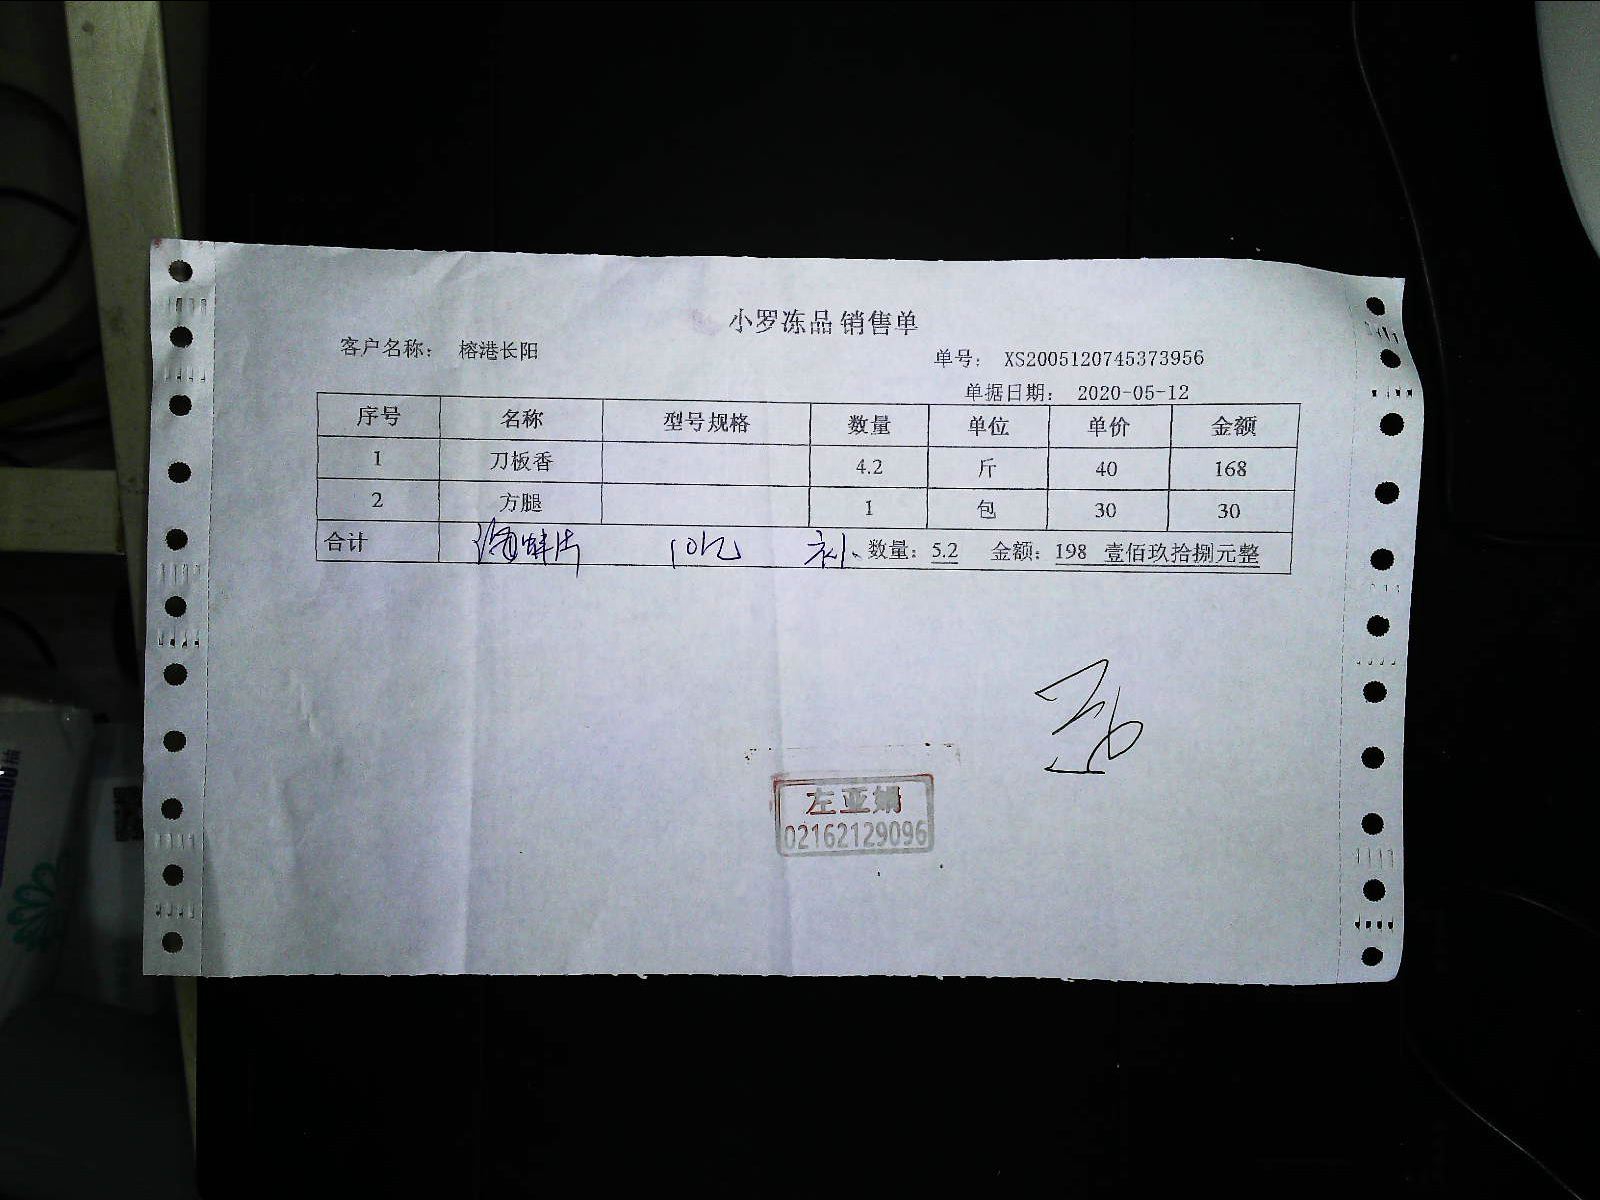 小罗冻品 销售单
客户名称： 榕港长阳 单号： XS2005120745373956
单据日期： 2020-05-12
序号 名称 型号规格 数量 单位 单价 金额
1 刀板香 4.2 斤 40 168
2 方腿 1 包 30 30
合计 数量：5.2 金额：198 壹佰玖拾捌元整
左亚娟
02162129096